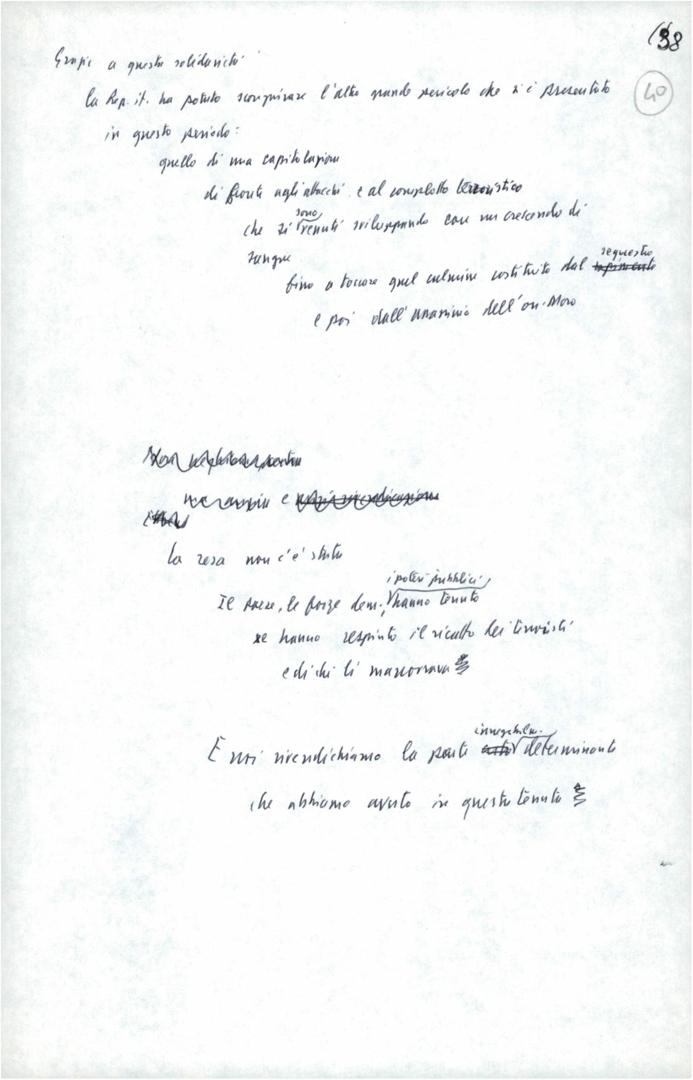 38
40
Grazie a questa solidarietà
la Rep. it. ha potuto scongiurare l'altro grande pericolo che si è presentato
in questo periodo:
quello di una capitolazione
di fronte agli attacchi e al complotto terroristico
sono
che si venuti sviluppando con un crescendo di
sangue
sequestro
fino a toccare quel culmine costituito dal
e poi dall'assassinio dell'on. Moro
e
La resa non c'è stata
i poteri pubblici
Il paese, le forze dem., hanno tenuto
se hanno respinto il ricatto dei terroristi
e di chi li manovrava
innegabilm.
E noi rivendichiamo la parte determinante
che abbiamo avuto in questa tenuta